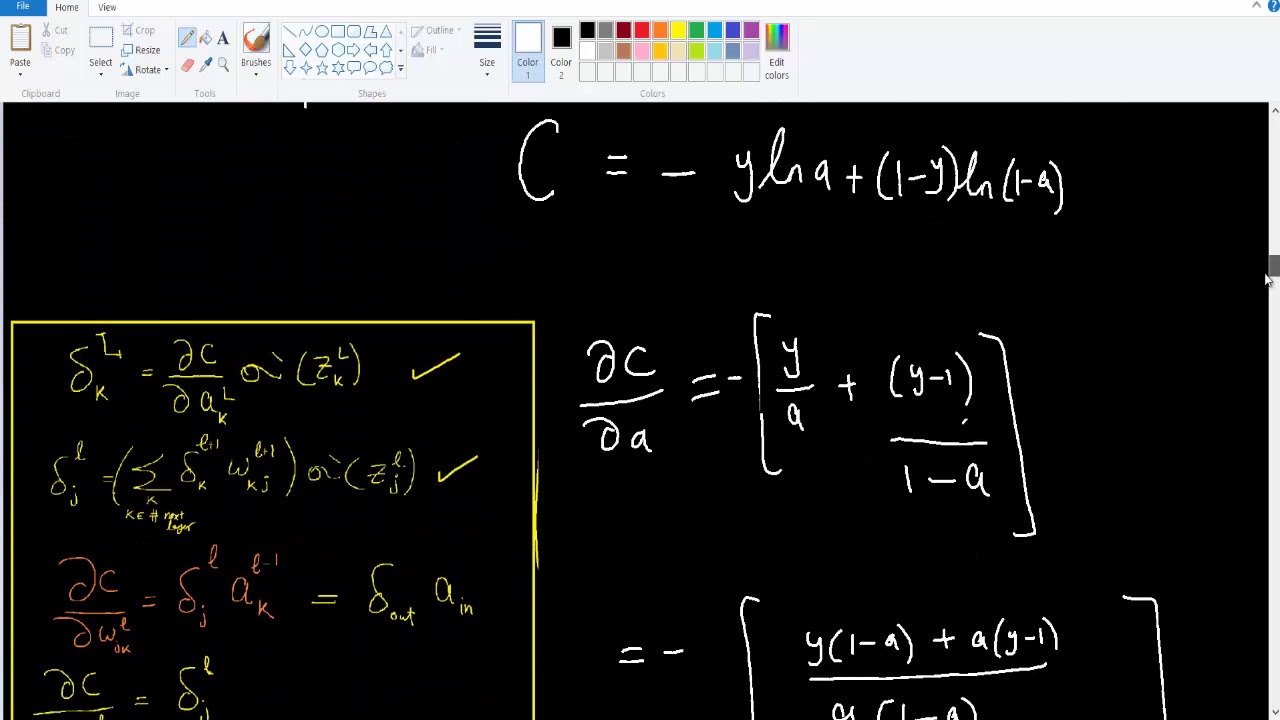 File Home View
Paste Cut Copy Clipboard
Select Crop Resize Rotate Image
Tools
Brushes
Outline Fill Shapes
Size
Color 1 Color 2 Edit colors Colors
C = - y ln a + (1-y) ln (1-a)
δ_k^L = ∂C/∂a_k^L σ'(z_k^L) ✓
δ_j^l = (∑_k δ_k^{l+1} w_{kj}^{l+1}) σ'(z_j^l) ✓
k ∈ # next layer
∂C/∂w_{jk}^l = δ_j^l a_k^{l-1} = δ_out a_in
∂C = δ_j^l
∂C/∂a = - [ y/a + (y-1)/(1-a) ]
= - [ y(1-a) + a(y-1) / a(1-a)